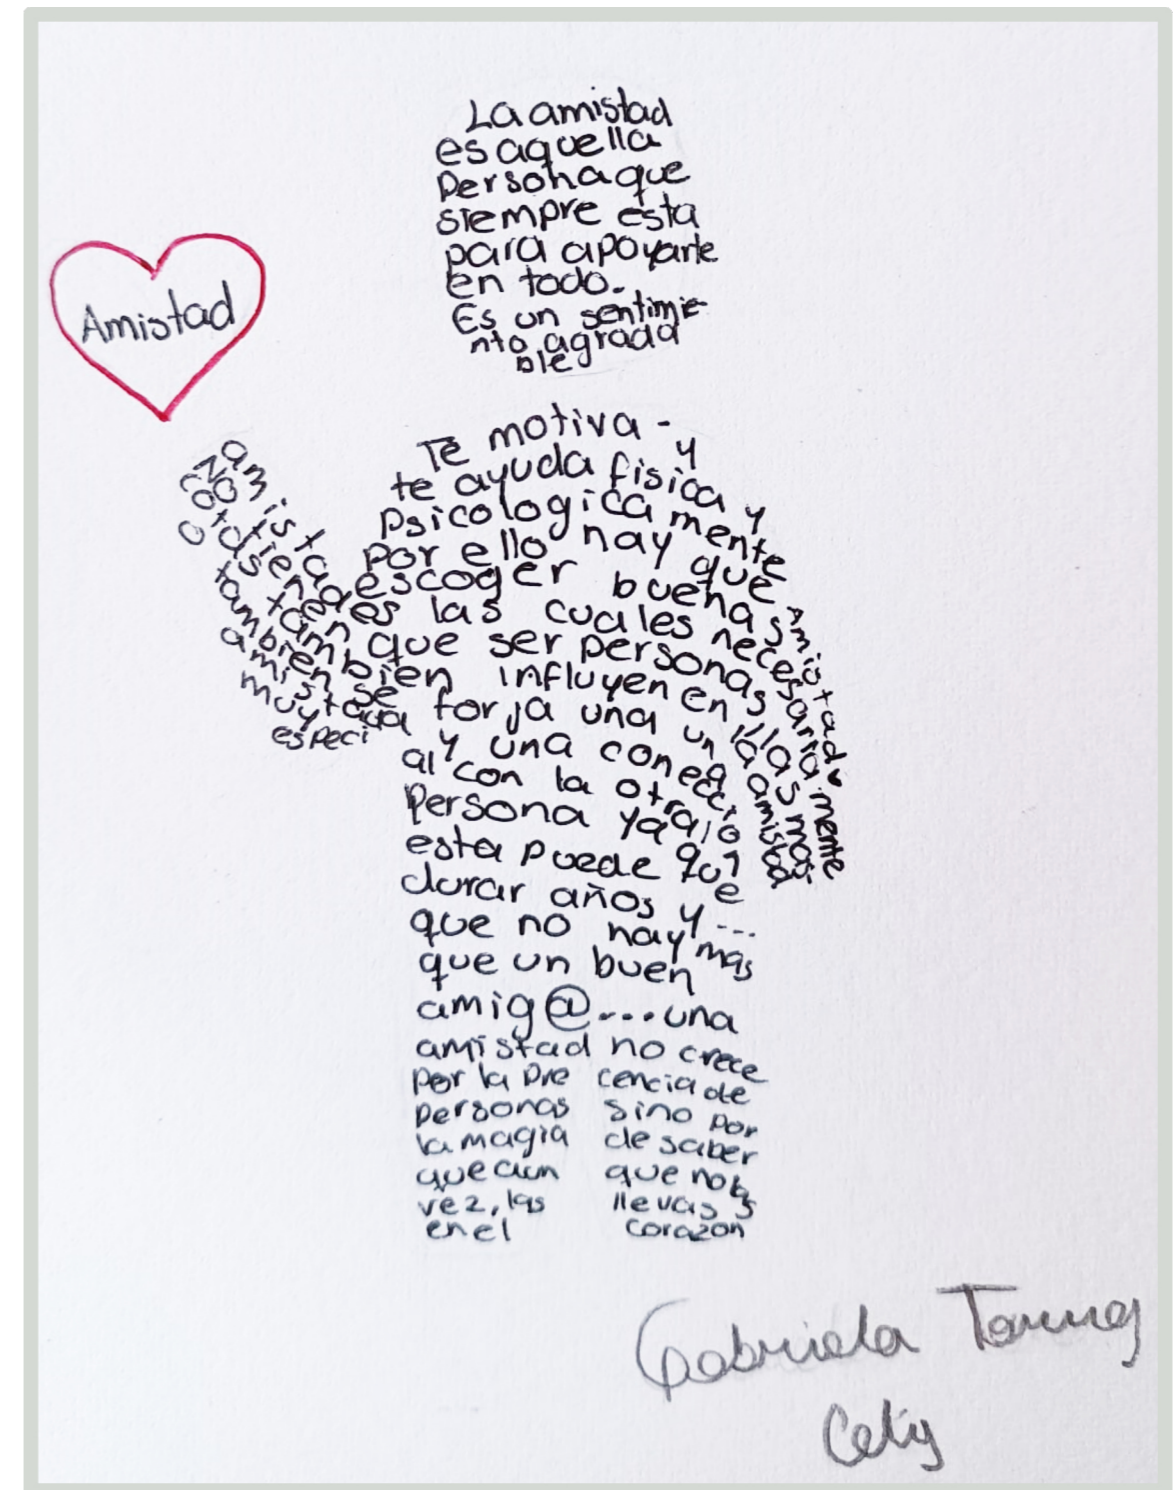 La amistad
es aquella
persona que
siempre esta
para apoyarte
en todo.
Es un sentimie
nto agrada
ble
Amistad
Te motiva - y
te ayuda fisica y
psicologica mente
por ello hay que
amistades escoger buenas Amistad
No tienen las cuales necesariamente
cotas que ser personas
o también influyen en las mas
también se forja una un la amistad
amistad y una conecció
muy especi
al con la otra
persona ya que
esta puede
durar años y...
que no hay mas
que un buen
amig@...una
amistad no crece
por la pre cencia de
personas sino por
la magia de saber
que aun que no las
vez, las llevas
en el corazon
Gabriela Torres
Celis